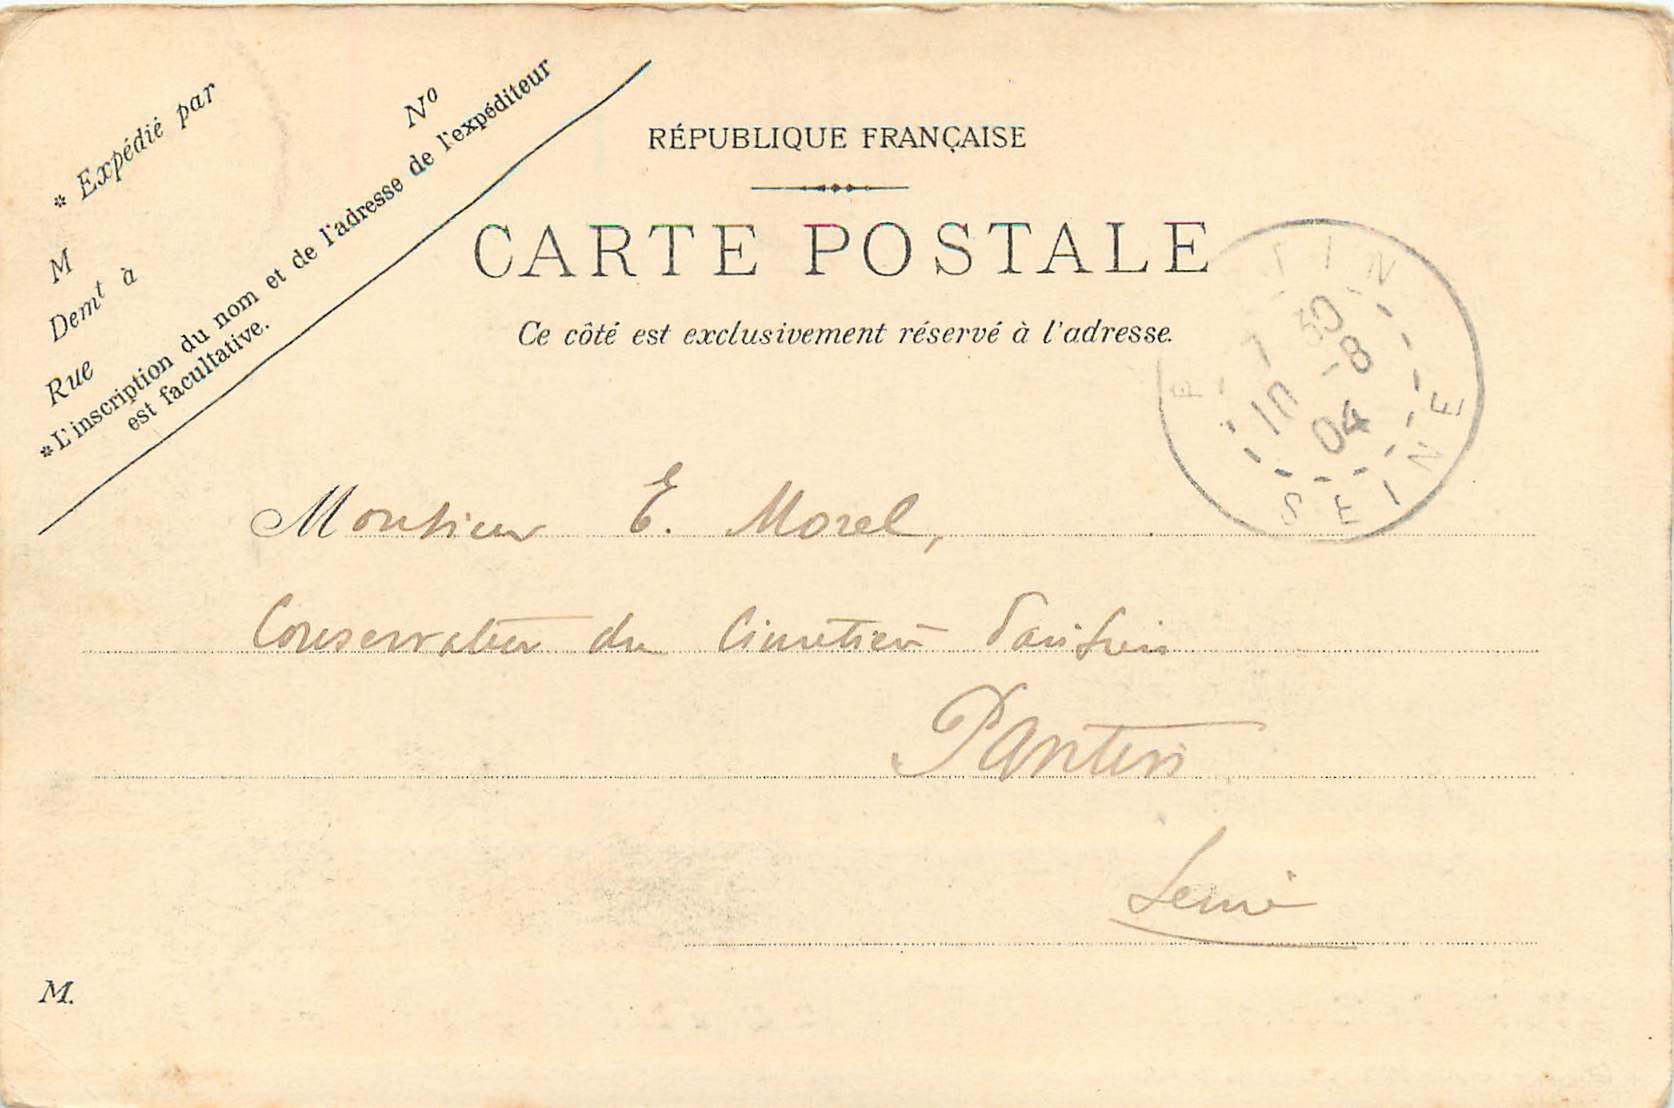 * Expédié par
Nº
M
Demt à
Rue
* L'inscription du nom et de l'adresse de l'expéditeur
est facultative.
RÉPUBLIQUE FRANÇAISE
CARTE POSTALE
Ce côté est exclusivement réservé à l'adresse.
TIN
7 30
10 -8
04
SEINE
Monsieur E. Morel,
Conservateur du Cimetière Parisien
Pantin
Seine
M.